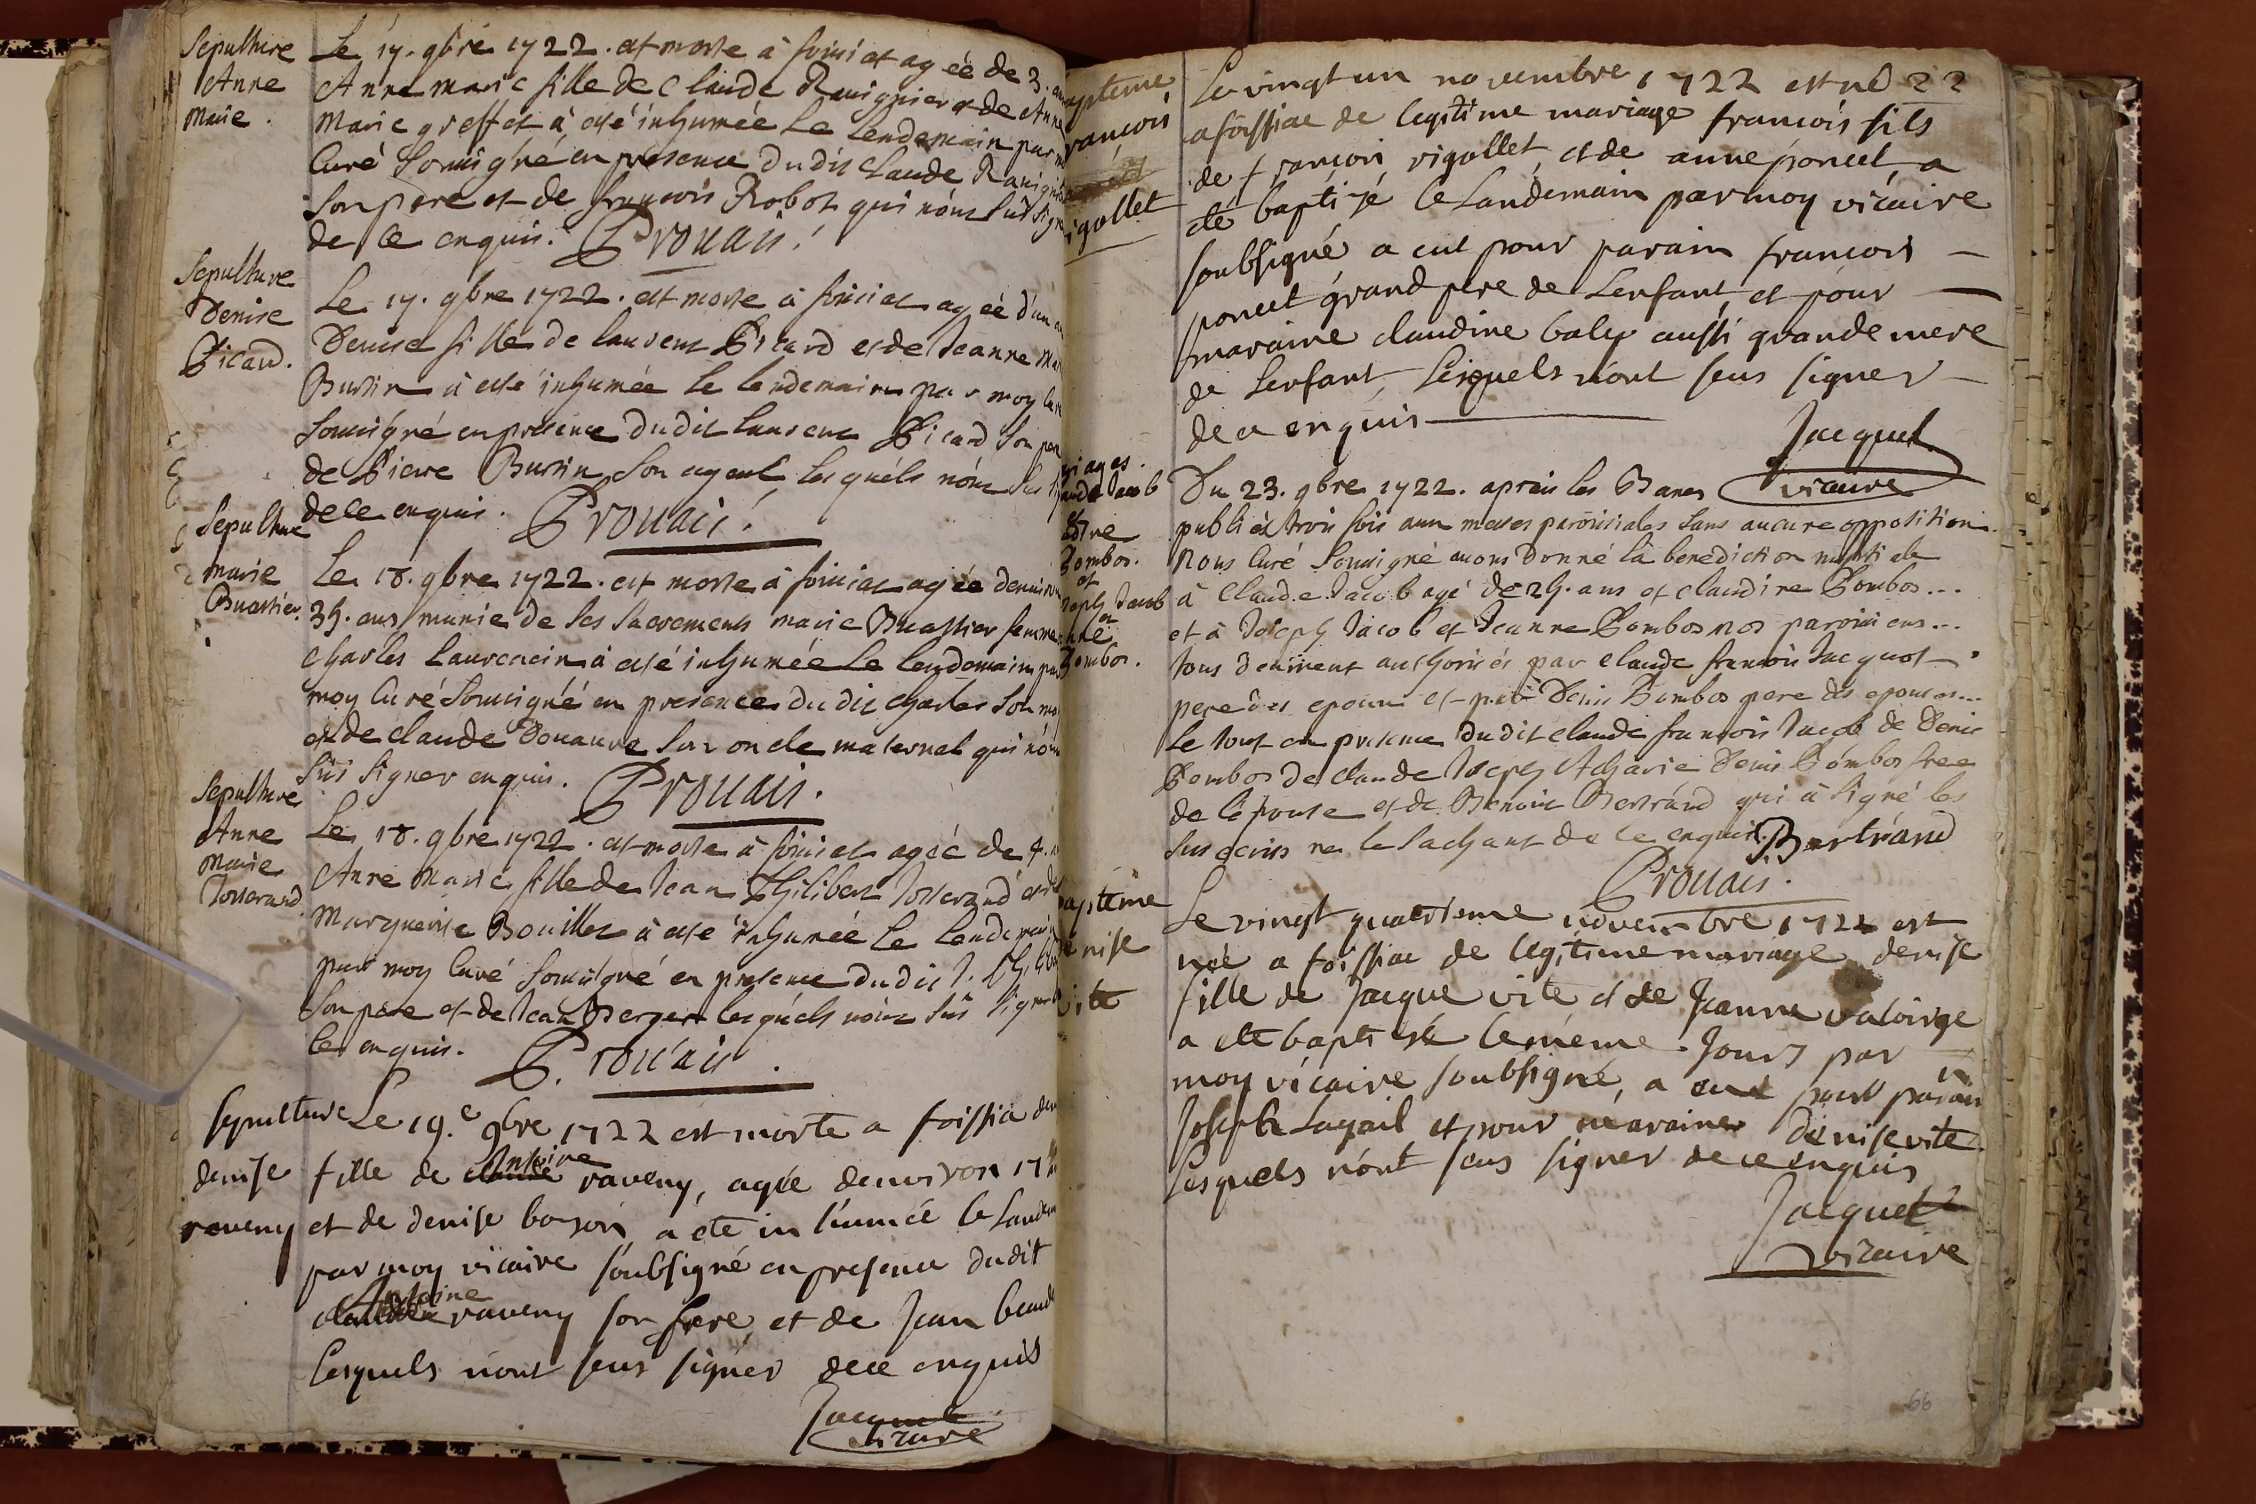 Sepulture
Anne
Marie.
Le 17. 9bre 1722. est morte à foissiat agéé de 3.
Anne marie fille de Claude Ravignier et de Anne
Marie greffet à esté inhumée Le Lendemain par
Curé Soussigné en presence du dit Claude
Son pere et de françois Robot qui nont sus sign
de ce enquis. Prouais.
Sepulture
Denise
Picard.
Le 17. 9bre 1722. est morte à foissiat agéé d'un
Denise fille de laurent Picard et de Jeanne
Buttin à esté inhumée Le lendemain par moy
Soussigné en presence du dit laurent Picard Son
de Pierre Buttin Son ayeul Lesquels nont Sus
de ce enquis. Prouais.
Sepulture
marie
Buattier.
Le 18. 9bre 1722. est morte à foissiat agée
35. ans munie de Ses Sacremens marie Buattier femme
Charles Laurencin à esté inhumée Le lendemain
moy Curé Soussigné en presence du dit Charles Son
et de Claude Douaure Son oncle maternel qui
Sus Signer enquis. Prouais.
Sepulture
Anne
Marie
Josserand
Le 18. 9bre 1722. est morte à foissiat agéé de 4.
Anne Marie fille de Jean Philibert Josserand et
Marguerite Bouillet à esté inhumée Le
par moy Curé Soussigné en presence du dit J.
Son pere et de Jean Berger lesquels nont Sus Signer
Ce enquis. Prouais.
Sepulture
denise
raveny
Le 19.e 9bre 1722 est morte a foissia
fille de Antoine raveny, agée denviron 17
et de denise boson, a ete in humée le
par moy vicaire soubsigné en presence dudit
Antoine raveny son frere et de Jean
Lesquels n'ont seus signer de ce enquis
Jacquet
vicaire
aptême
rançois
igollet
Le vingt un novembre 1722 est né
a foissiac de legitime mariage françois fils
de françois rigollet, et de anne poncet, a
eté baptisé le Landemain par moy vicaire
soubsigné a eut pour parain françois —
poncet grand pere de Lenfant, et pour —
maraine claudine baly aussi grande mere
de Lenfant, Lesquels n'ont seus signer —
de ce enquis —
Jacquet
vicaire
iages.
Jacob
Bombos.
et
Jacob
et
Bombos.
Du 23. 9bre 1722. aprés les Bancs
publiés trois fois aux messes paroissiales Sans aucune opposition
nous Curé Soussigné avons donné la benediction nuptiale
à Claude Jacob agé de 25. ans et claudine Bombos...
et à Joseph Jacob et Jeanne Bombos nos paroissiens...
tous deument authorisés par Claude françois Jacquot
pere des epoux et par Denis Bombos pere des epouses...
Le tout en presence du dit claude françois Jacob de Denis
Bombos de claude Joseph Denis Bombos frere
de Lépouse et de Benoit Bertrand qui à Signé les
Sus ne le Sachant de ce enquis. Bertrand
Prouais.
aptême
enise
ite
Le vingt quatrieme novembre 1722 est
née a foissiac de legitime mariage denise
fille de Jacque vite et de Jeanne valoirge
a eté baptisée le même Jours par
moy vicaire soubsigné, a eu pour parain
Joseph Lagail et pour maraine denise vite
Lesquels n'ont seus signer de ce enquis
Jacquet
vicaire
66